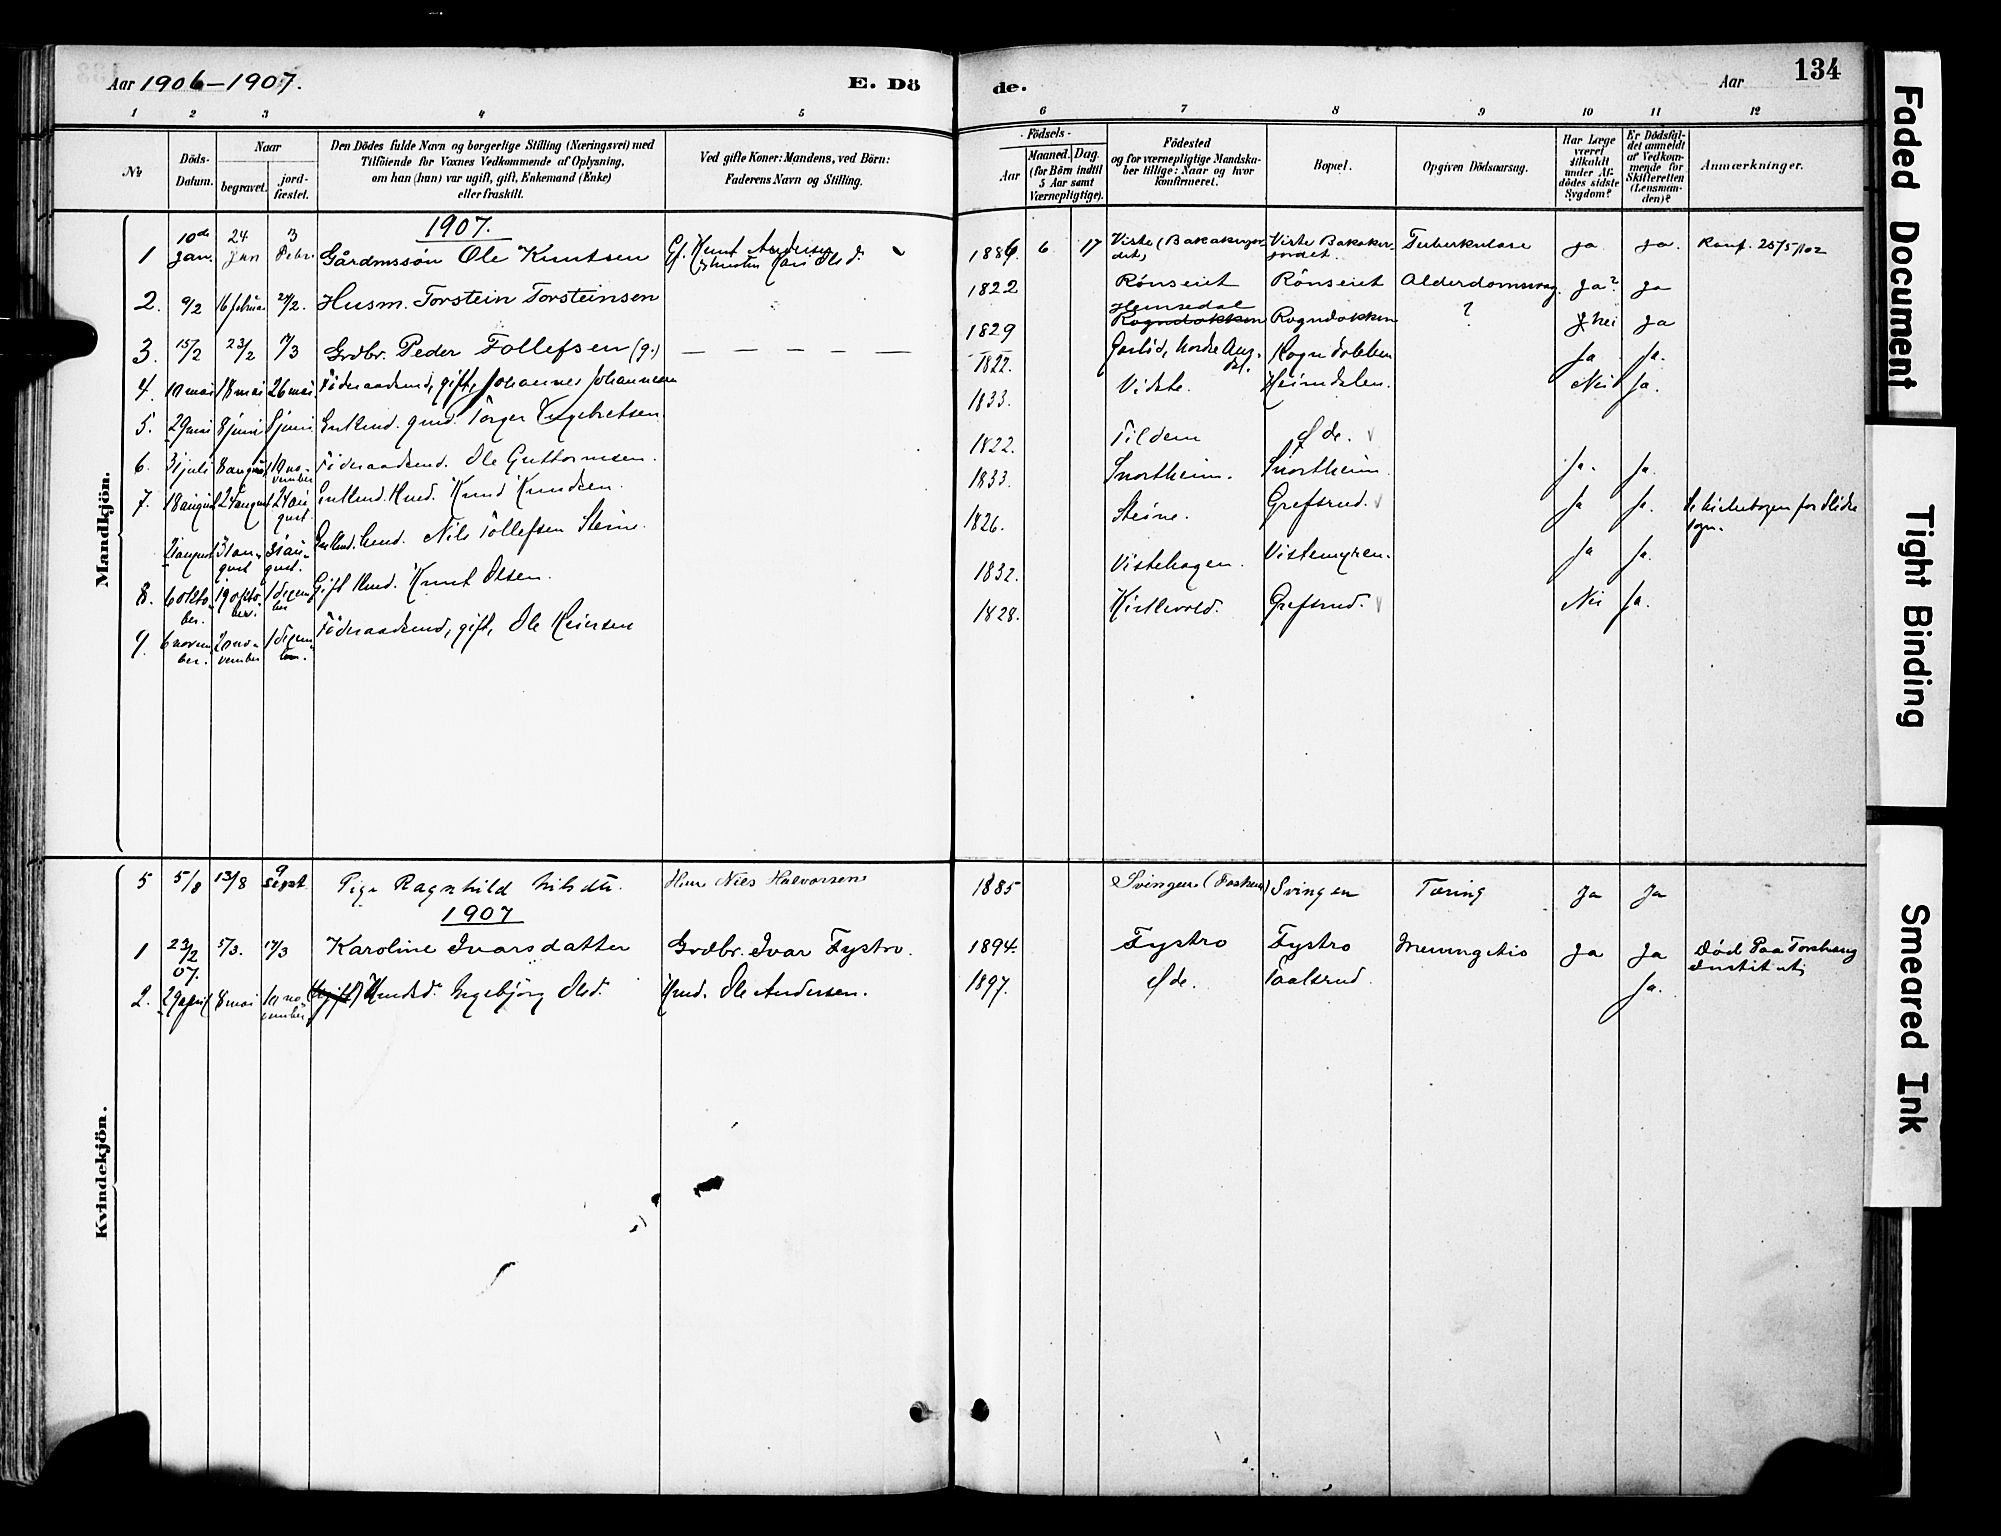 Aar 1906-1907.
E. Dö
de.
Aar
134
1 2 3 4 5 6 7 8 9 10 11 12
№
Döds-Datum.
Naar
begravet.
jord-fæstet.
Den Dödes fulde Navn og borgerlige Stilling (Næringsvei) med
Tilföiende for Voxnes Vedkommende af Oplysning,
om han (hun) var ugift, gift, Enkemand (Enke)
eller fraskilt.
Ved gifte Koner: Mandens, ved Börn:
Faderens Navn og Stilling.
Födsels-
Aar
Maaned. Dag.
(for Börn indtil
5 Aar samt
Værnepligtige).
Födested
og for værnepligtige Mandska-
ber tillige: Naar og hvor
konfirmeret.
Bopæl.
Opgiven Dödsaarsag.
Har Læge
været
tilkaldt
under Af-
dödes sidste
Sygdom?
Er Dödsfal-
det anmeldt
af Vedkom-
mende for
Skifteretten
(Lensman-
den)?
Anmærkninger.
Mandkjön.
1907.
1 10de Jan. 24 Jan 3 Febr. Gårdmssön Ole Knutsen Gf. Knut Andersen Kari Olsd. 1886 6 17 Viste (Bakakergordet) Viste Bakakergordet. Tuberkulose ja ja. Konf. 25/5 1902
2. 9/2 16 februar 24/2. Husm. Torstein Torsteinsen 1822 Rønseiet Rønseiet Alderdomssvag. Ja? Ja
3. 15/2 23/2 17/3 Grdbr. Peder Tollefsen (g.) — — — — — 1829 Hemsedal Rogndokken Rogndokken ? nei Ja
4. 10 mai 18 mai 26 mai Föderaadsmd, gift, Johannes Johannesen 1822. Garlid, Nordre Aurdal. Rogndokken Ja Ja.
5. 29 juni 8 juni Enkemd. gmd. Torger Engebretsen 1833. Vidste. Heimdalen. Nei Ja.
6. 31 juli 8 august 10 november Föderaadsmd. Ole Guttormsen. 1822. Tildem Øde.
7. 18 august 24 august 24 august Enkemd. Hmd. Knud Knudsen. 1833. Snortheim. Snortheim. Ja. Ja.
2 august 31 august 31 august. Enkemd. Hmd. Nils Tollefsen Steine. 1826. Steine. Grefsrud. Ja Ja. kirkebogen for Slidre sogn.
8. 6 oktober. 19 oktober. 1 dezember Gift Hmd. Knut Olsen. 1832. Vistehagen. Vistemyren. Ja Ja.
9. 6 november. 20 november 1 dezember. Föderaadsmd, gift, Ole Heiersen 1828. Kirkevold. Grefsrud. Nei Ja.
Kvindekjön.
5 5/8 13/8 9 Sept. Pige Ragnhild Nilsdtr. Hm. Niels Halvorsen 1885 Svingen Svingen Tæring Ja Ja
1907
1 23/2 07. 5/3. 17/3 Karoline Ivarsdatter Grdbr. Ivar Fystro. 1894. Fystro Fystro Meningitis Ja Ja Död Paa Institut
2. 29 april 8 mai 10 november (Ugift) Hmdsd. Ingebjörg Olsd. Hmd. Ole Andersen. 1897. Øde. Paalsrud. Ja.
Faded Document
Tight Binding
Smeared Ink